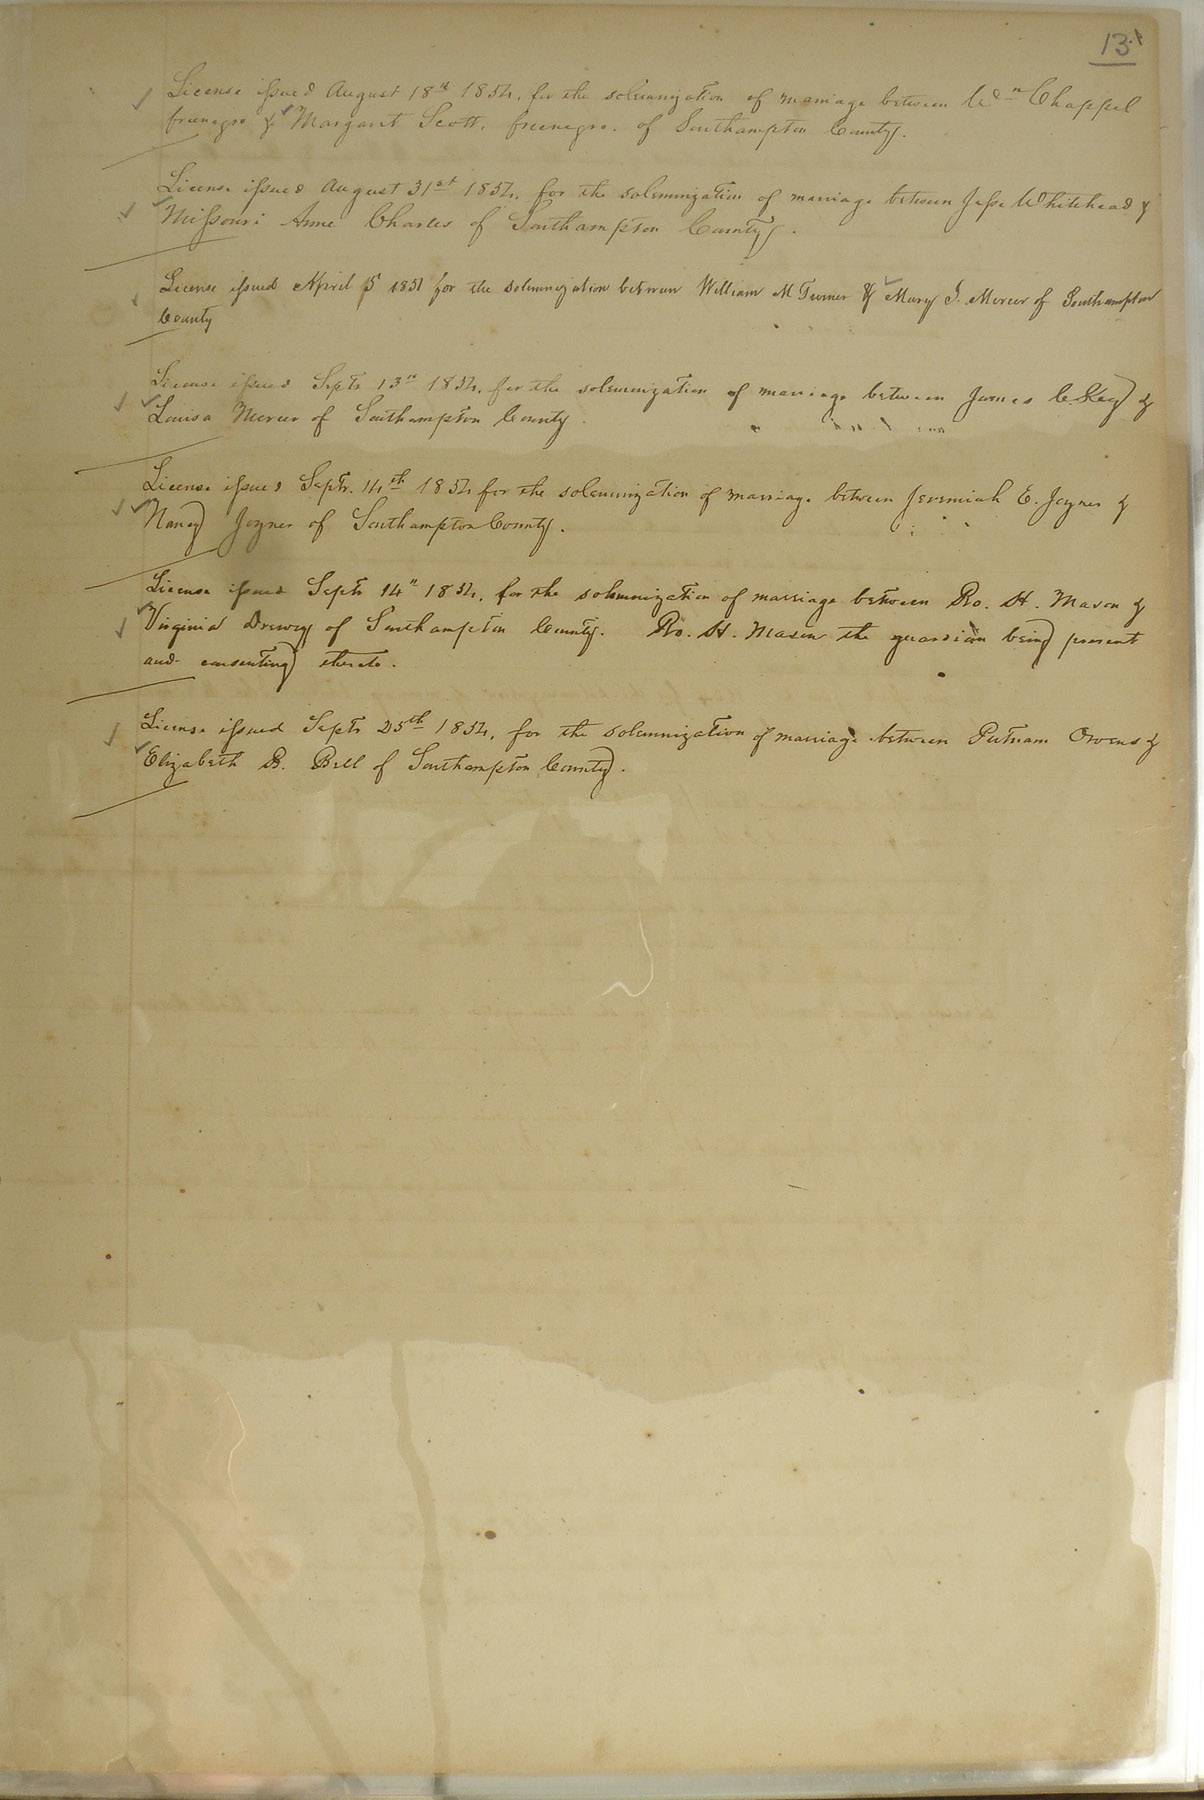 13
License issued August 18th 1854, for the solemnization of marriage between Wm Chappel
freenegro & Margaret Scott, freenegro. of Southampton County.
License issued August 31st 1854, for the solemnization of marriage between Jesse Whitehead &
Missouri Anne Charles of Southampton County.
License issued April 5 1851 for the solemnization between William M Turner & Mary J. Mercer of Southampton
County
License issued Septr 13th 1854, for the solemnization of marriage between James C. Key &
Louisa Mercer of Southampton County.
License issued Septr. 14th 1854 for the solemnization of marriage between Jeremiah E. Joyner &
Nancy Joyner of Southampton County.
License issued Septr 14th 1854, for the solemnization of marriage between Ro. H. Mason &
Virginia Drewry of Southampton County. Ro. H. Mason the guardian being present
and consenting thereto.
License issued Septr 25th 1854, for the solemnization of marriage between Putnam Owens &
Elizabeth B. Bell of Southampton County.